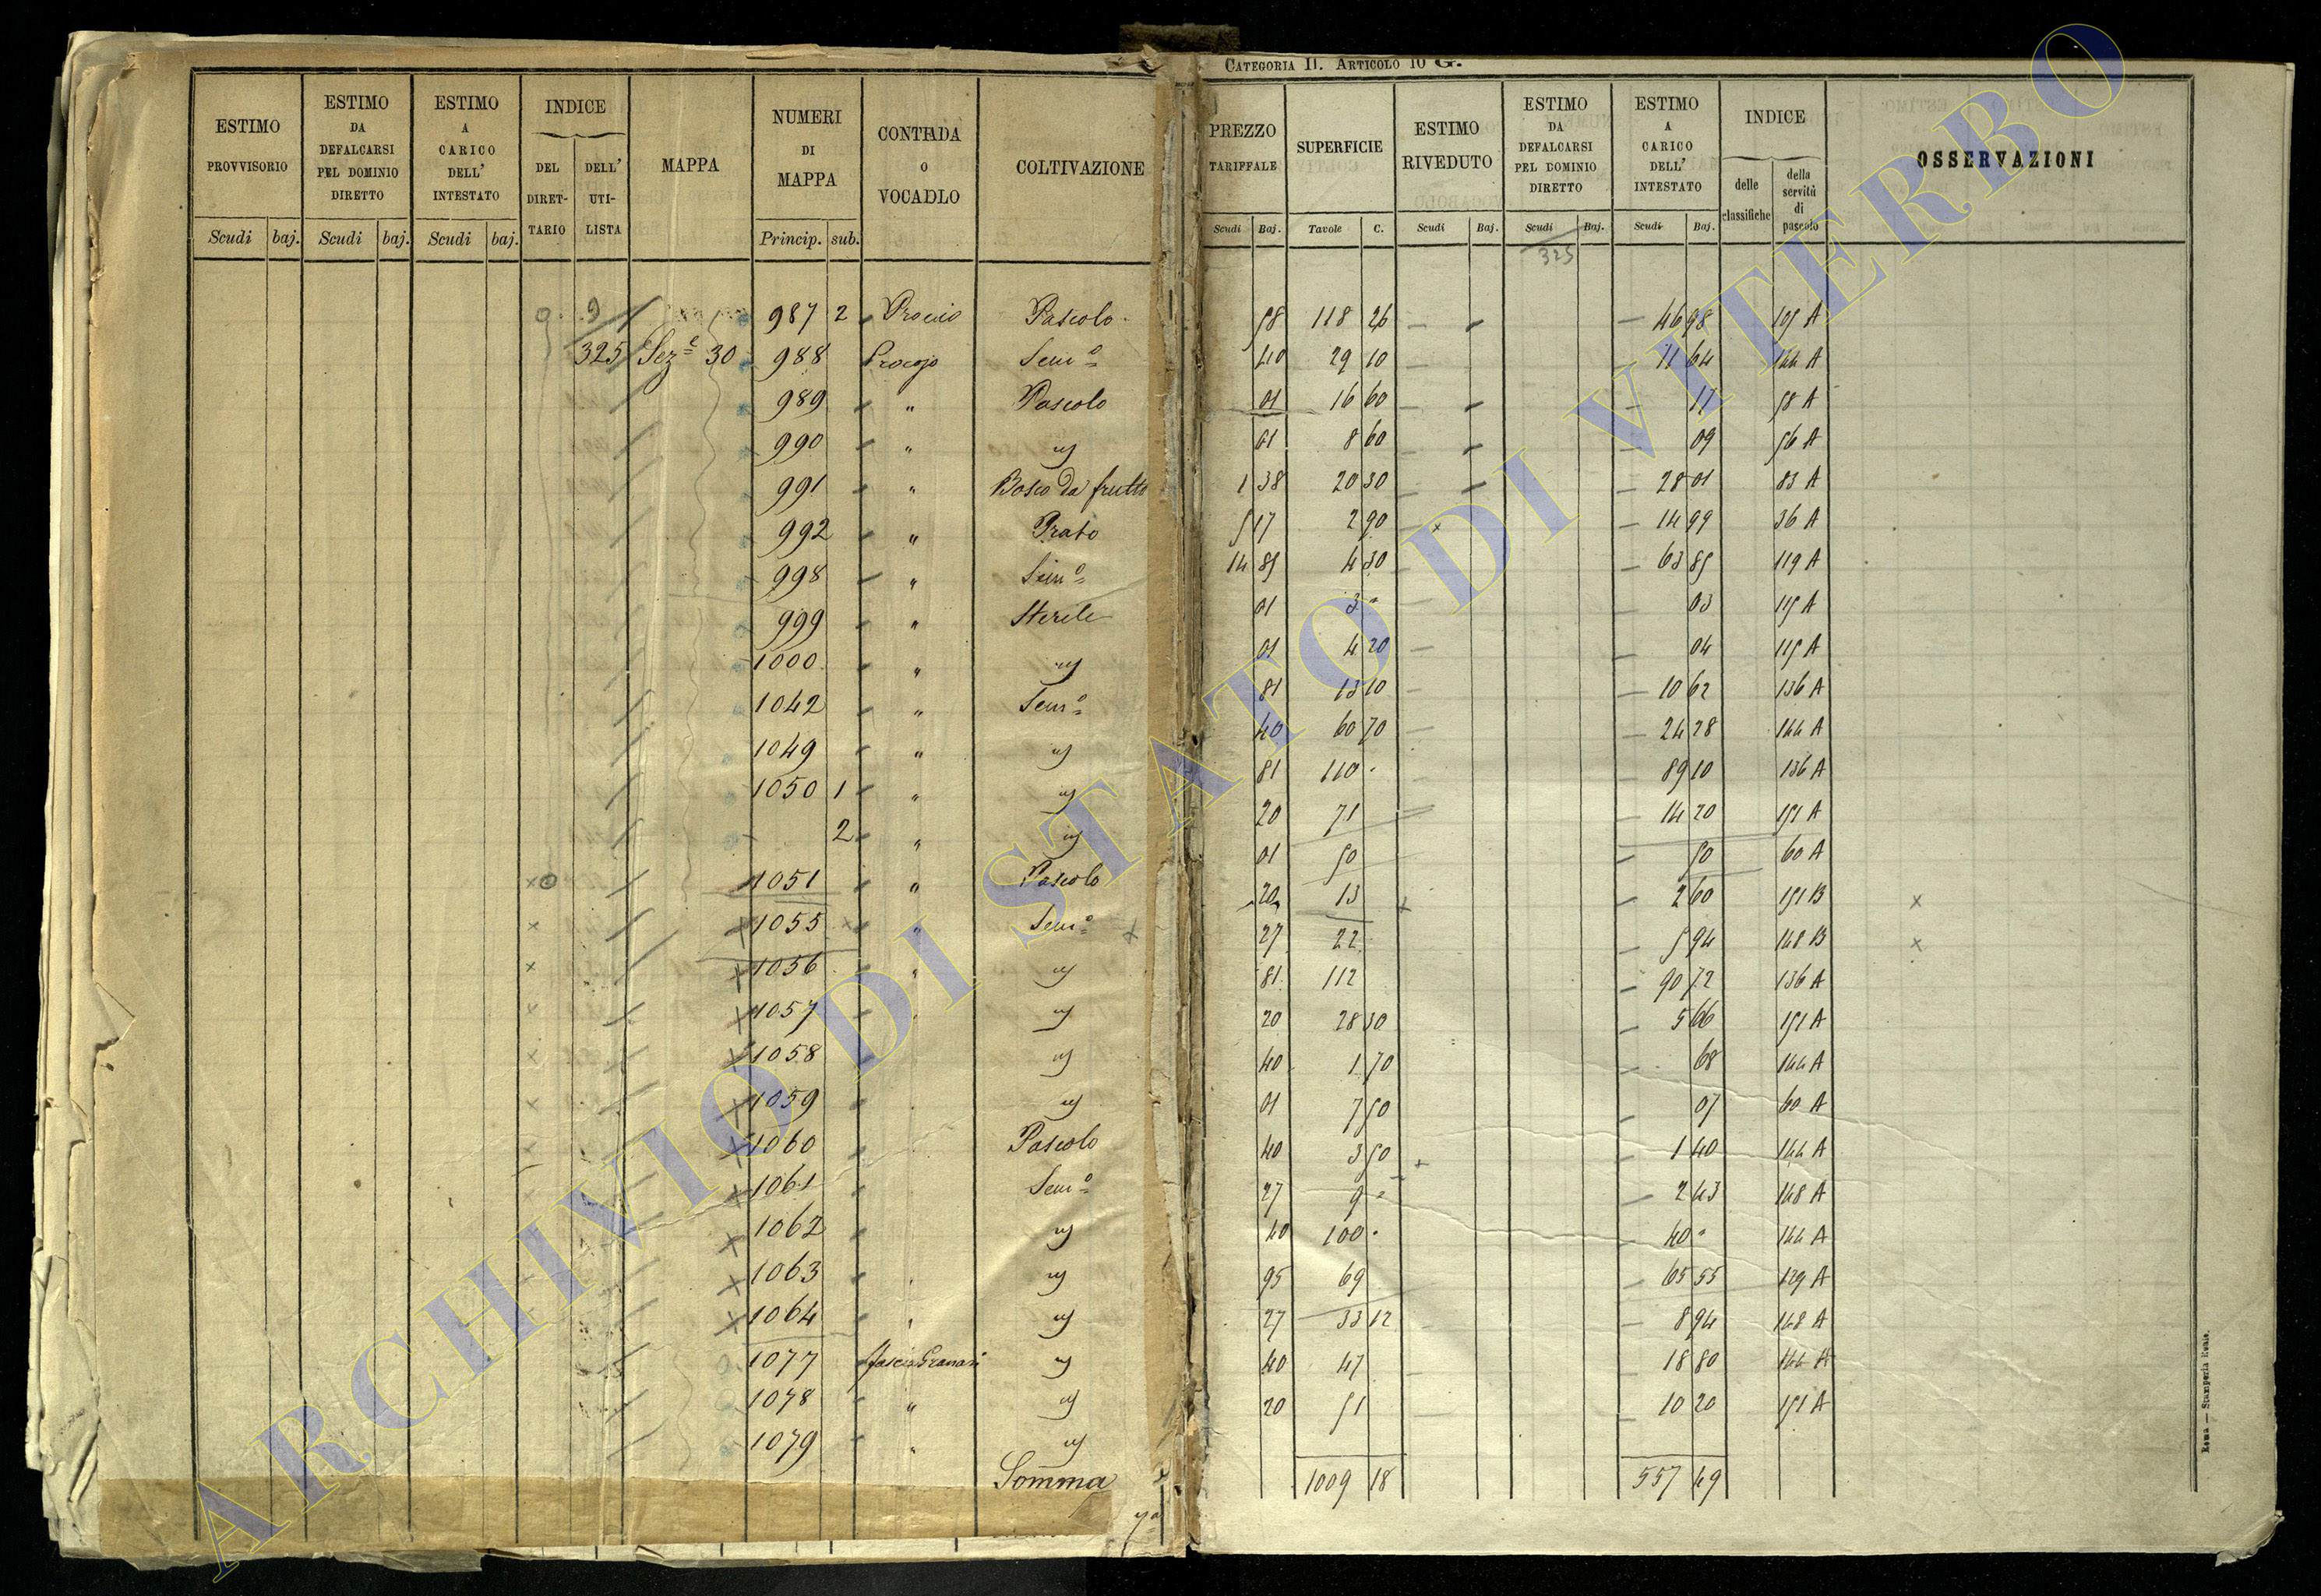 CATEGORIA II. ARTICOLO 10 G.
ESTIMO PROVVISORIO Scudi baj.
ESTIMO DA DEFALCARSI PEL DOMINIO DIRETTO Scudi baj.
ESTIMO A CARICO DELL' INTESTATO Scudi baj.
INDICE DEL DIRETTARIO DELL' UTILISTA
MAPPA
NUMERI DI MAPPA Princip. sub.
CONTRADA O VOCABOLO
COLTIVAZIONE
PREZZO TARIFFALE Scudi Baj.
SUPERFICIE Tavole C.
ESTIMO RIVEDUTO Scudi Baj.
ESTIMO DA DEFALCARSI PEL DOMINIO DIRETTO Scudi Baj.
ESTIMO A CARICO DELL' INTESTATO Scudi Baj.
INDICE delle classifiche della servitù di pascolo
OSSERVAZIONI
325
9 987 2 Pascolo 58 118 26 46 98 105 A
325 Sez.e 30 988 Procojo Sem.o 40 29 10 11 64 144 A
989 " Pascolo 01 16 60 17 58 A
990 " 01 8 60 09 56 A
991 " Bosco da frutto 1 38 20 30 28 01 83 A
992 " Prato 5 17 2 90 14 99 36 A
998 " Sem.o 14 85 4 30 63 85 119 A
999 " Sterile 01 3 " 03 115 A
1000 " 01 4 20 04 115 A
1042 " Sem.o 81 13 10 10 62 136 A
1049 " 40 60 70 24 28 144 A
1050 1 " 81 110 " 89 10 136 A
2 " 20 71 14 20 151 A
1051 " Pascolo 01 50 50 60 A
1055 " Sem.o 20 13 2 60 151 B x
1056 " 27 22 5 94 148 B x
1057 81 112 90 72 136 A
1058 20 28 30 5 66 151 A
1059 40 1 70 68 144 A
1060 Pascolo 01 7 50 07 60 A
1061 Sem.o 40 3 50 1 40 144 A
1062 27 9 " 2 43 148 A
1063 40 100 " 40 " 144 A
1064 95 69 65 55 129 A
1077 27 33 12 8 94 148 A
1078 " 40 47 18 80 144 A
1079 " 20 51 10 20 151 A
Somma 1009 18 557 49
Roma — Stamperia Reale.
ARCHIVIO DI STATO DI VITERBO